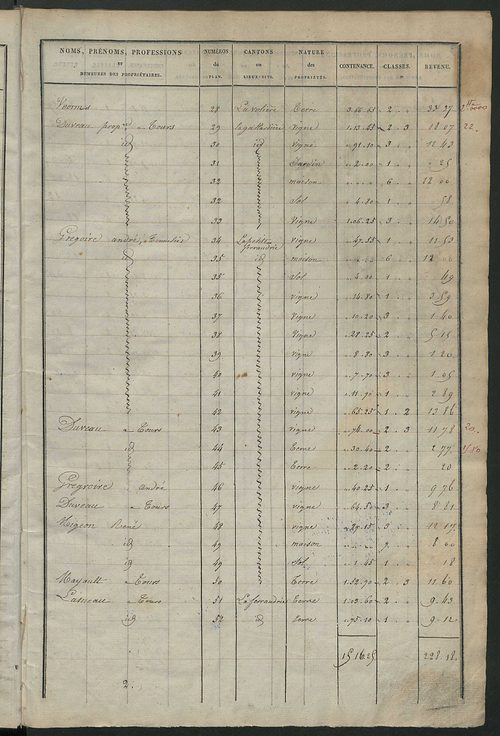 NOMS, PRÉNOMS, PROFESSIONS ET DEMEURES DES PROPRIÉTAIRES. NUMÉROS du PLAN. CANTONS ou LIEUX-DITS. NATURE des PROPRIÉTÉS. CONTENANCE. CLASSES. REVENU.
28 Terre 2
Duveau prop.re a Tours 29 vigne 1.13.65 2 3 18 07 22
id 30 id vigne 91.10 3 12 43
31 Jardin 2.00 1 25
32 maison 6 12 00
32 Sol 4.80 1 58
33 vigne 1.06.25 3 14 50
Gregoire andré, 34 vigne 47.55 1 11 53
id 35 id maison 6 12 00
35 Sol 4.00 1 49
36 vigne 14.80 1 3 59
37 vigne 10.20 3 1 40
38 vigne 28.25 2 5 15
39 vigne 8.80 3 1 20
40 vigne 7.70 3 1 05
41 vigne 11.70 1 2 89
42 vigne 65.25 1 2 13 86
Duveau a Tours 43 vigne 74.00 2 3 11 78 20
id 44 Terre 30.40 2 2 77
45 Terre 2.20 2 20
Gregroire andré 46 vigne 40.25 1 9 76
Duveau a Tours 47 vigne 64.50 3 8 81
Migeon René 48 vigne 89.15 3 12 17
id 49 maison 7 8 00
id 49 Sol 1.45 1 18
Mayault a Tours 50 Terre 1.52.70 2 3 11 60
a Tours 51 Laferrandrie Terre 1.03.60 2 9 43
id 52 id terre 75.20 1 9 12
15 16.25 228 18
2.